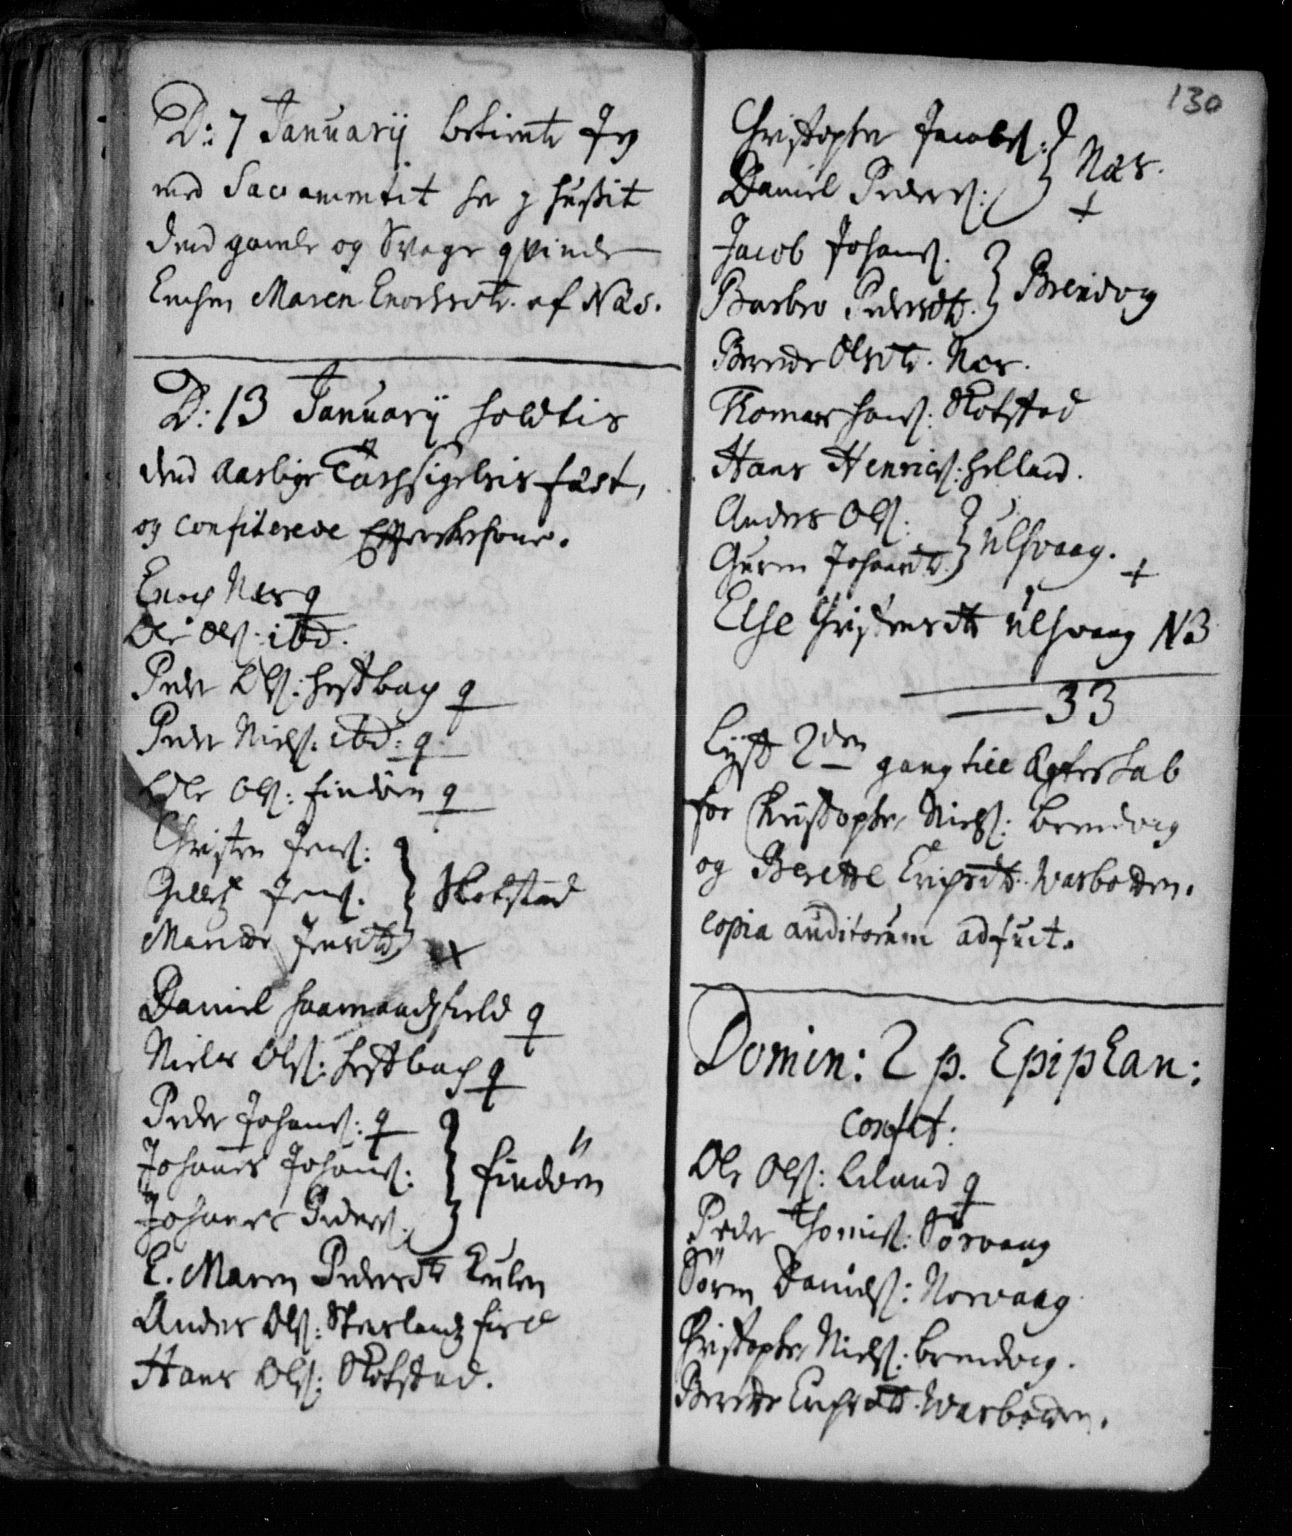 D: 7 Januarij betiente Jeg
med Sacramentit her j hußit
dend gamle og Svage qvinde
Encken Maren Enochsdtr. af Næs.
D: 13 Januarij holdtis
dend aarlige Tachsigelsis fæst,
og confiterede Effterskrefne.
Enoch Næs q
Ole Ols: ibd.
Peder Ols: hestbach q
Peder Niels: ibd: q
Ole Ols: Findöen q
Christen Jens:
Jens.
Marithe Jensdtr } Skotstad
Daniel haamandsfield q
Niels Ols: hestbach q
Peder Johans: q
Johanes Johans:
Johanes Peders. } Findöen
E. Maren Pedersdtr
Anders Ols:
Hans Ols: Skotstad.
130
Christopher Jacobs:
Daniel Peders: } Næs. +
Jacob Johans.
Barbro Pedersdtr. } Brendvog
Berete Olsdtr. Næs.
Thomas Hans: Skotstad
Hans Henrics: helland.
Anders Ols:
Guren Johansdtr. } Ulsvaag. +
Else Christensdtr Ulsvaag NB
33
Lyst 2den gang till Ægteskab
for Christopher Niels: brendvog
og Berette Erichsdtr. Warbotten.
copia auditorum adfuit.
Domin: 2 p. Epiphan:
confit:
Ole Ols: Leland q
Peder Thomes: Sörvaag
Sören Daniels: Norvaag
Christopher Niels: brendvog.
Berette Erichsdtr. Warbotten.